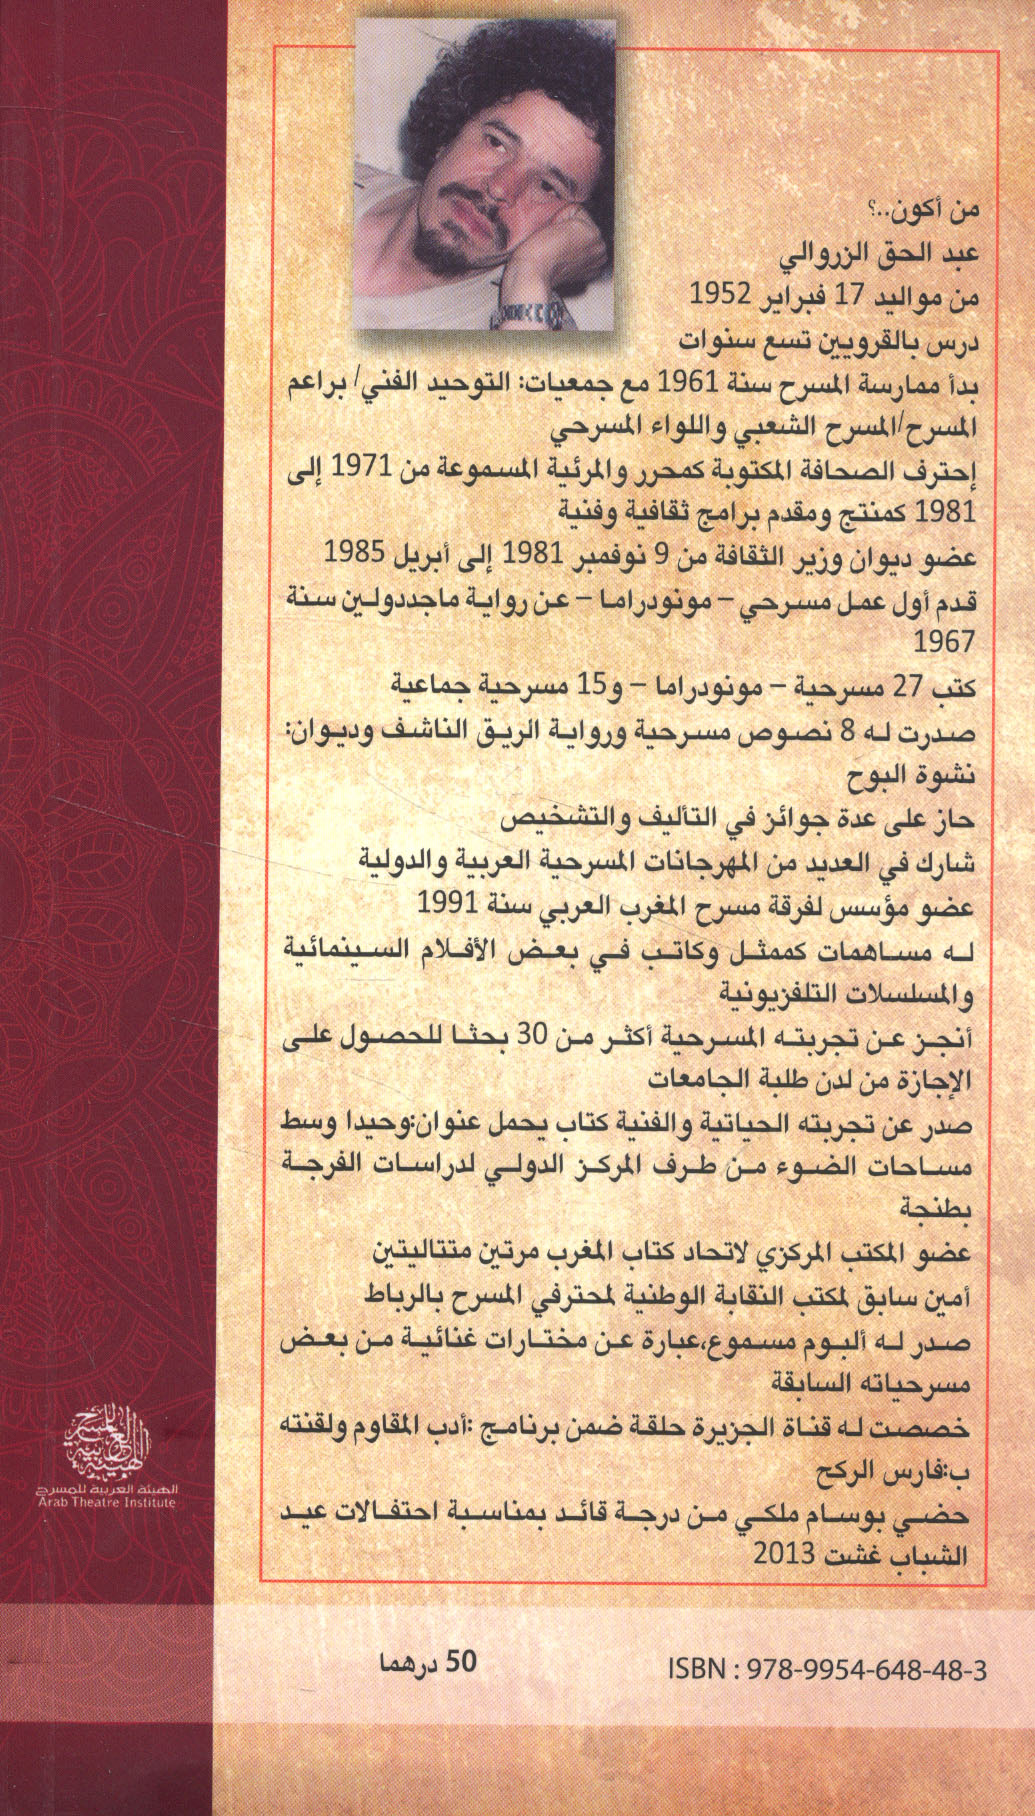 من أكون..؟
عبد الحق الزروالي
من مواليد 17 فبراير 1952
درس بالقرويين تسع سنوات
بدأ ممارسة المسرح سنة 1961 مع جمعيات: التوحيد الفني/ براعم
المسرح/المسرح الشعبي واللواء المسرحي
إحترف الصحافة المكتوبة كمحرر والمرئية المسموعة من 1971 إلى
1981 كمنتج ومقدم برامج ثقافية وفنية
عضو ديوان وزير الثقافة من 9 نوفمبر 1981 إلى أبريل 1985
قدم أول عمل مسرحي – مونودراما – عن رواية ماجددولين سنة
1967
كتب 27 مسرحية – مونودراما – و15 مسرحية جماعية
صدرت له 8 نصوص مسرحية ورواية الريق الناشف وديوان:
نشوة البوح
حاز على عدة جوائز في التأليف والتشخيص
شارك في العديد من المهرجانات المسرحية العربية والدولية
عضو مؤسس لفرقة مسرح المغرب العربي سنة 1991
له مساهمات كممثل وكاتب في بعض الأفلام السينمائية
والمسلسلات التلفزيونية
أنجز عن تجربته المسرحية أكثر من 30 بحثا للحصول على
الإجازة من لدن طلبة الجامعات
صدر عن تجربته الحياتية والفنية كتاب يحمل عنوان:وحيدا وسط
مساحات الضوء من طرف المركز الدولي لدراسات الفرجة
بطنجة
عضو المكتب المركزي لاتحاد كتاب المغرب مرتين متتاليتين
أمين سابق لمكتب النقابة الوطنية لمحترفي المسرح بالرباط
صدر له ألبوم مسموع،عبارة عن مختارات غنائية من بعض
مسرحياته السابقة
خصصت له قناة الجزيرة حلقة ضمن برنامج :أدب المقاوم ولقنته
ب:فارس الركح
حضي بوسام ملكي من درجة قائد بمناسبة احتفالات عيد
الشباب غشت 2013
الهيئة العربية للمسرح
الهيئة العربية للمسرح
Arab Theatre Institute
50 درهما
ISBN : 978-9954-648-48-3